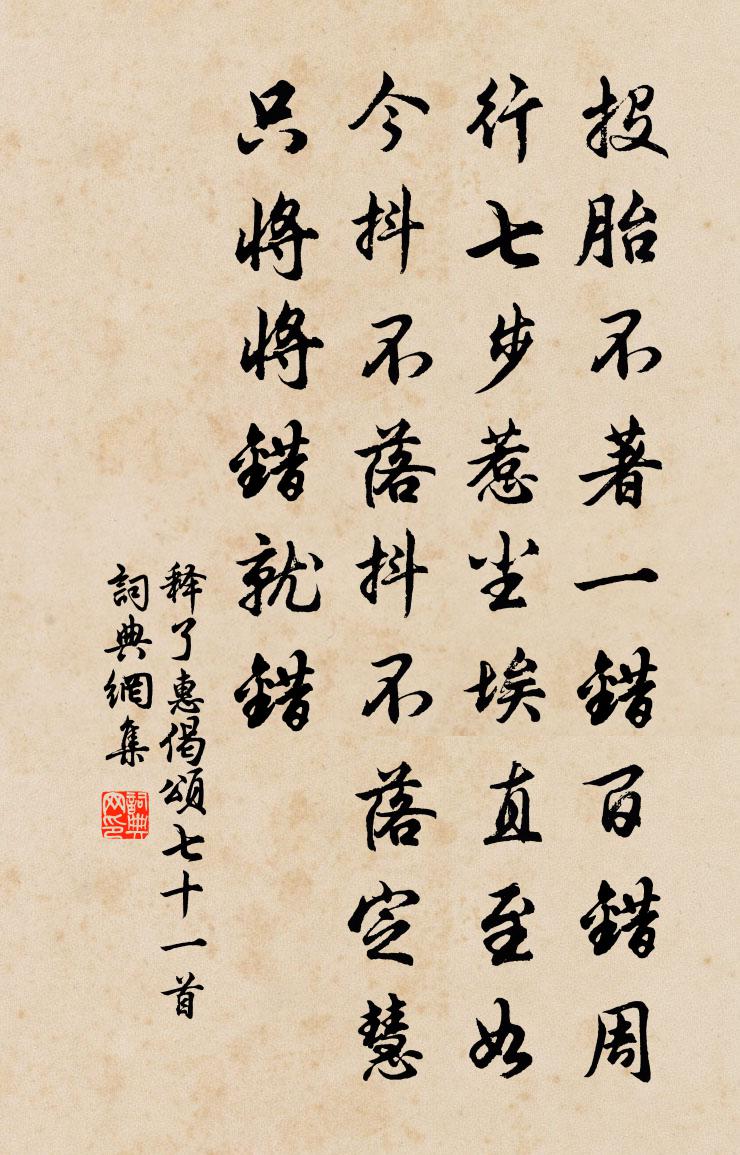 投胎不著一錯百錯周
行七步惹尘埃直至如
今抖不落抖不落定慧
只將將錯就錯
释了惠偈頌七十一首
詞典網集
詞典网印